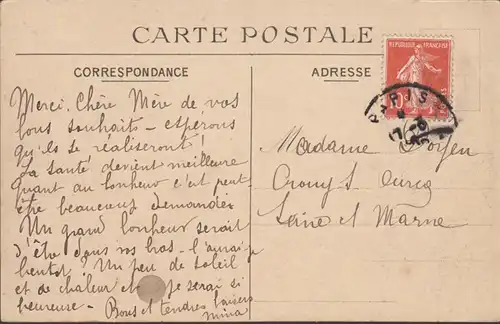 CARTE POSTALE
CORRESPONDANCE
Merci, Chère Mère de vos
bons souhaits - espérons
qu'ils se réaliseront !
La santé devient meilleure
quant au bonheur c'est peut
être beaucoup demander
Un grand bonheur serait
d'être dans vos bras - l'aurai-je
bientôt ? Un peu de soleil
et de chaleur et je serai si
heureuse - Bons et tendres baisers
Mina
ADRESSE
REPUBLIQUE FRANÇAISE
10
PARIS
Madame
Crouy s/ Ourcq
Seine et Marne